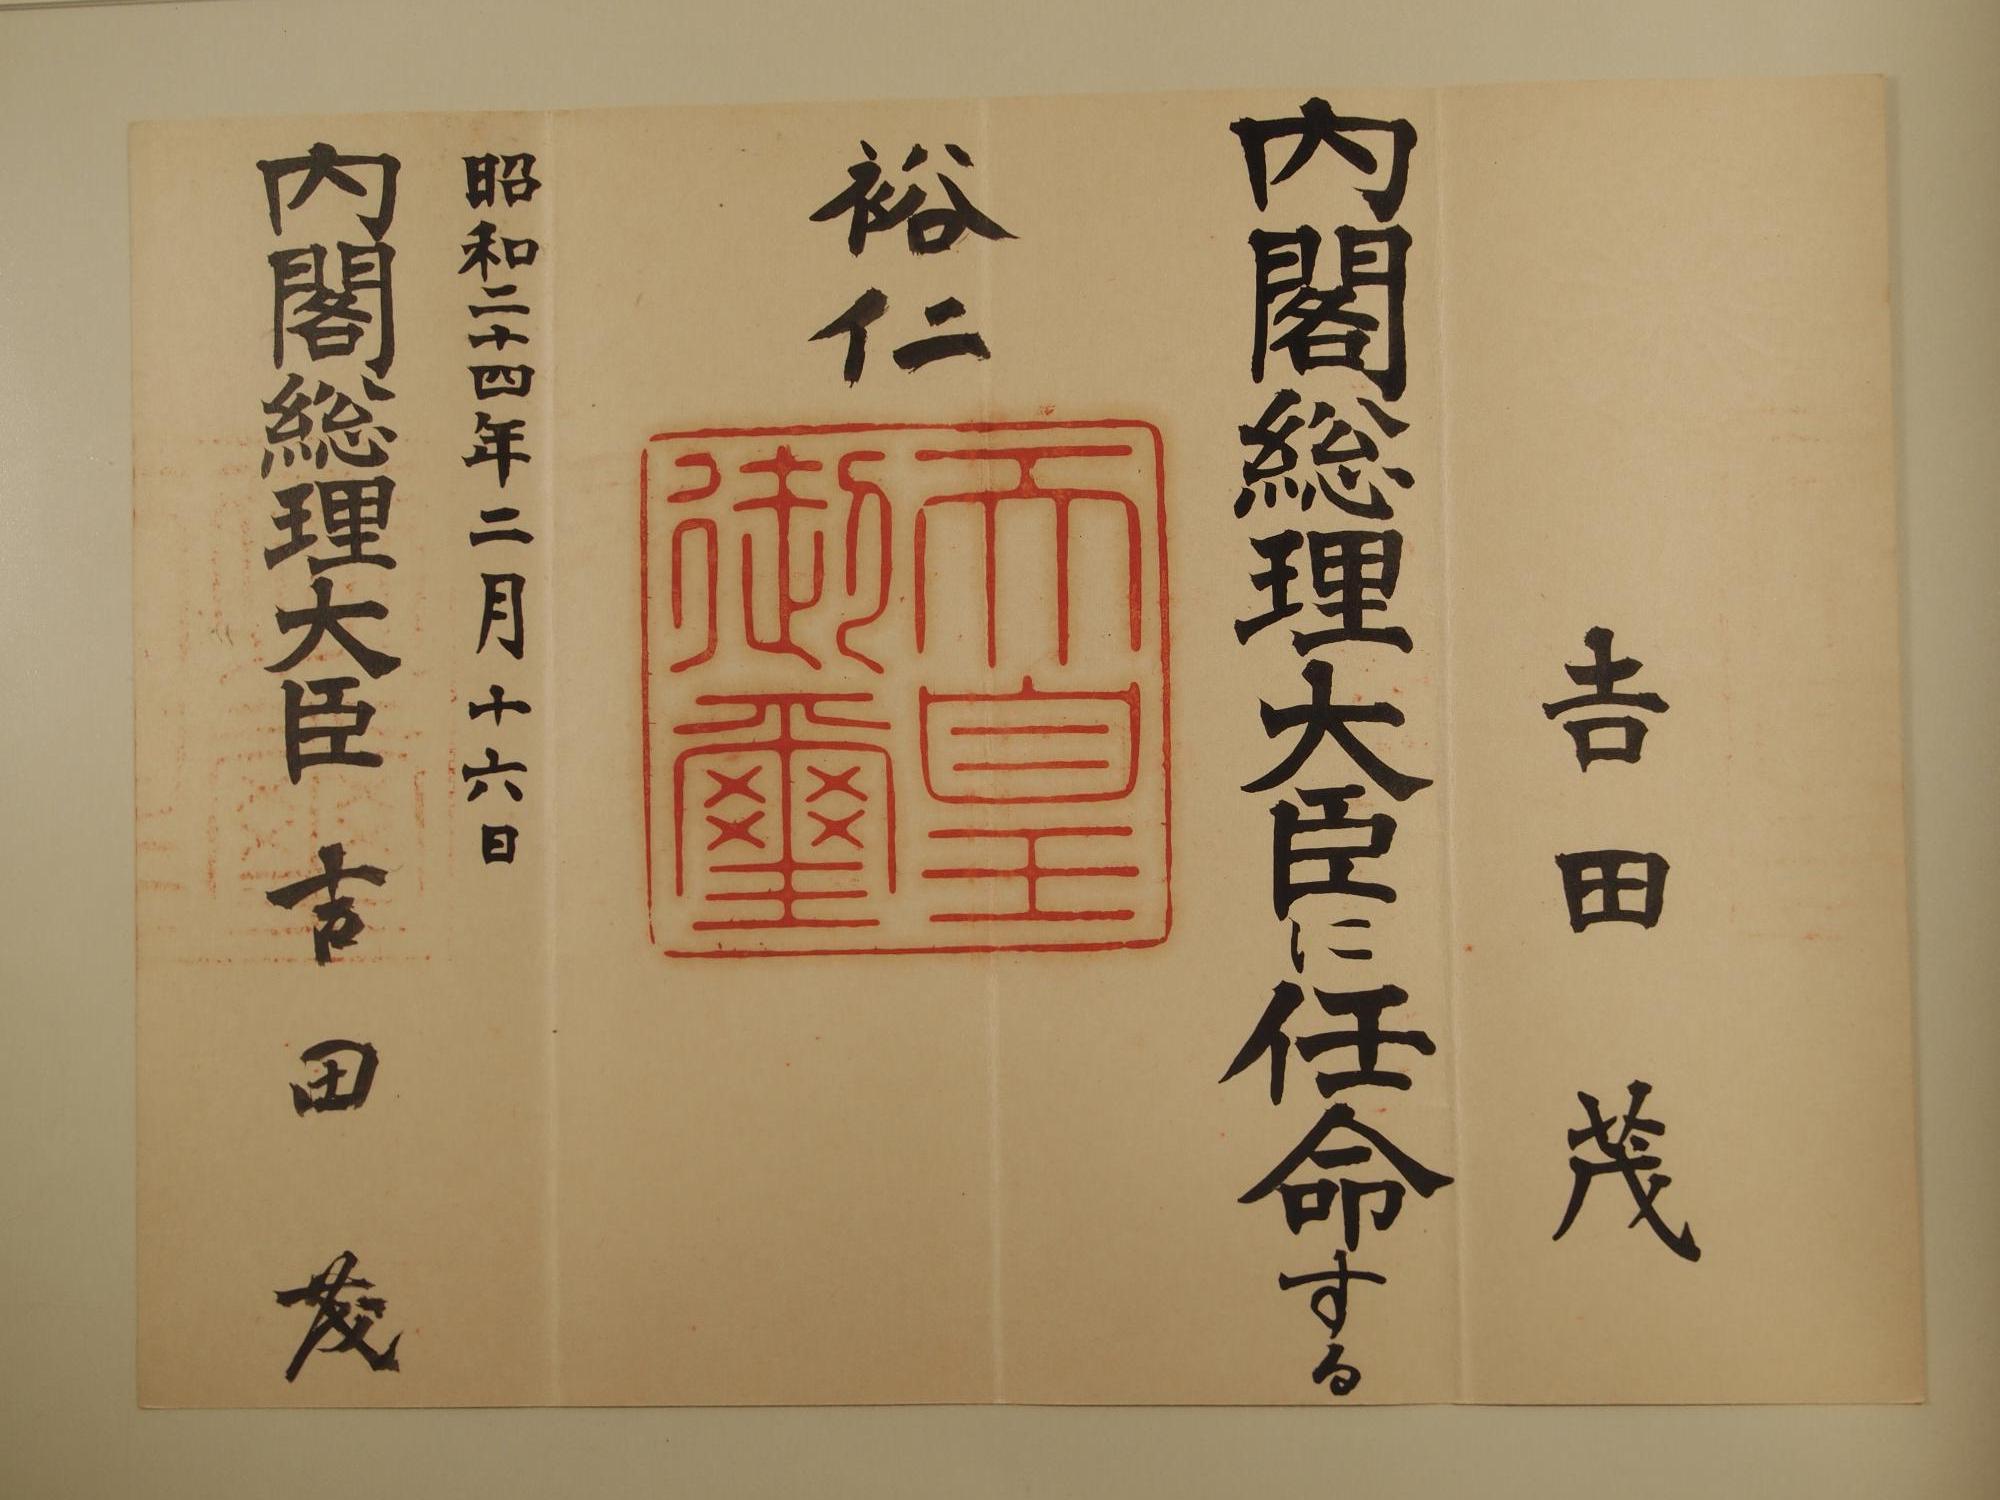 𠮷田茂
内閣総理大臣に任命する
裕仁
天皇
御璽
昭和二十四年二月十六日
内閣総理大臣 吉田茂